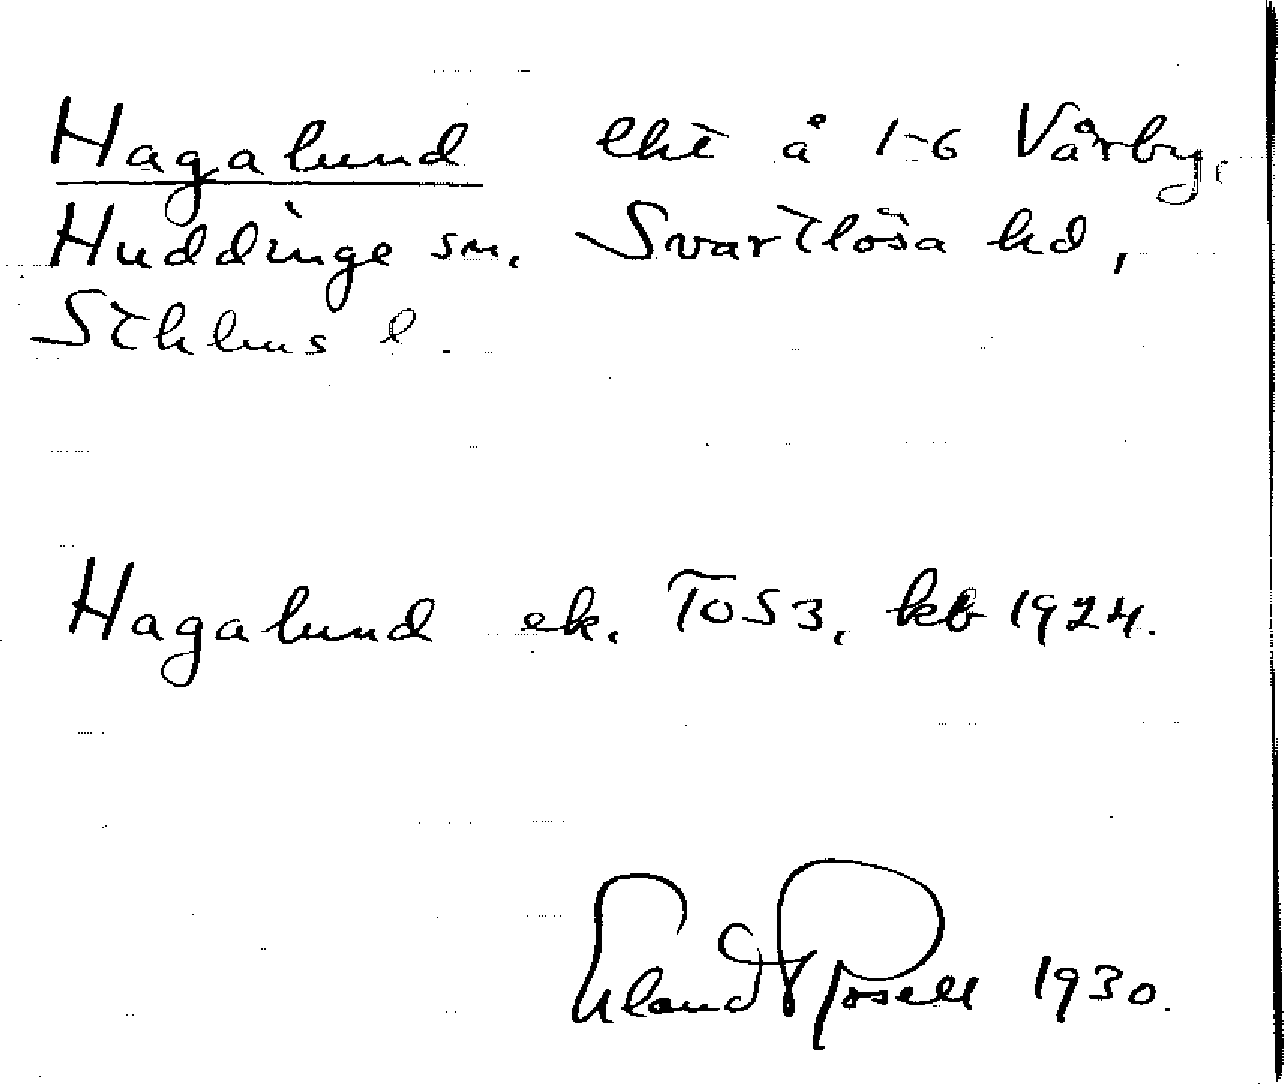 Hagalund lht å 1-6 Vårby,
Huddinge sn. Svartlösa hd,
Sthlms l.
Hagalund ek. T053, kb 1924.
Erland Rosell 1930.